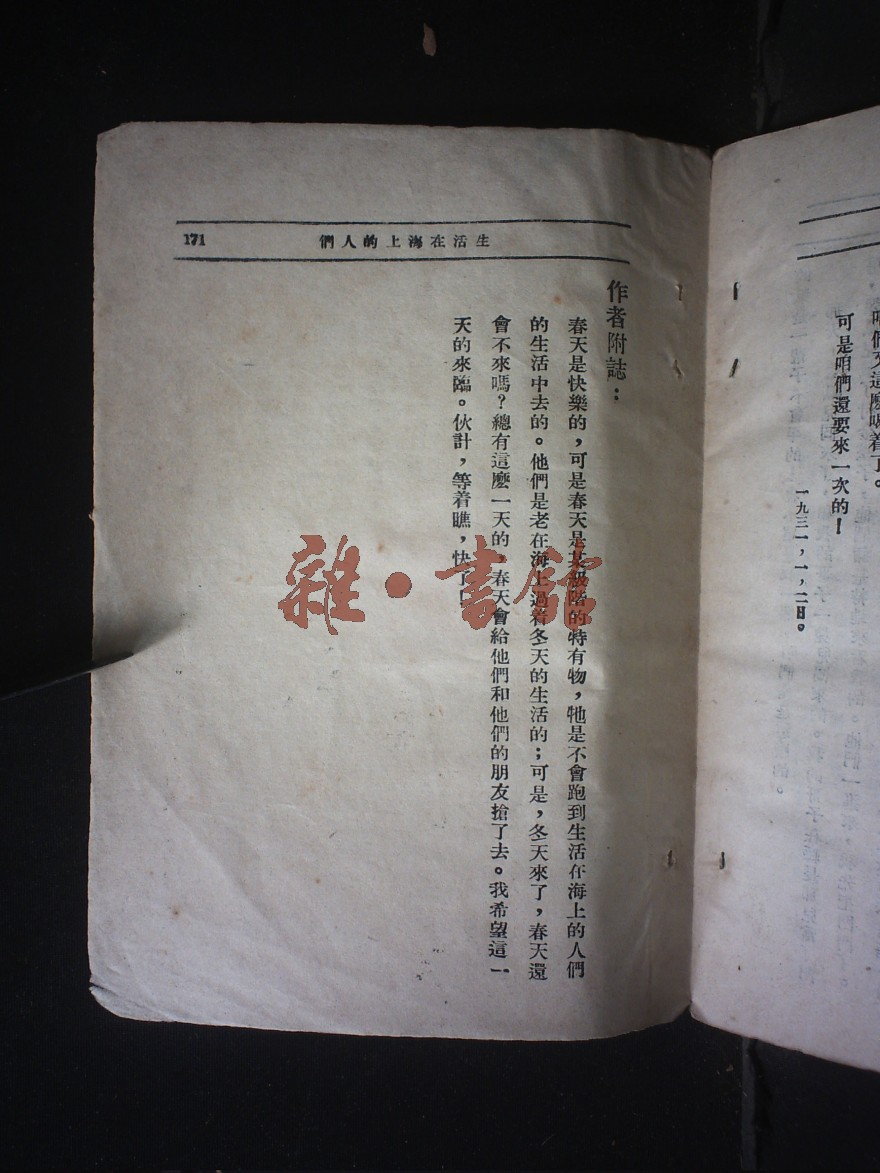 咱們又這麽喊着了。
可是咱們還要來一次的!
一九三一,一,二日。
生活在海上的人們
171
作者附誌:
春天是快樂的,可是春天是某級階的特有物,牠是不會跑到生活在海上的人們
的生活中去的。他們是老在海上過着冬天的生活的;可是,冬天來了,春天還
會不來嗎?總有這麽一天的,春天會給他們和他們的朋友搶了去。我希望這一
天的來臨。伙計,等着瞧,快了!
雜·書館